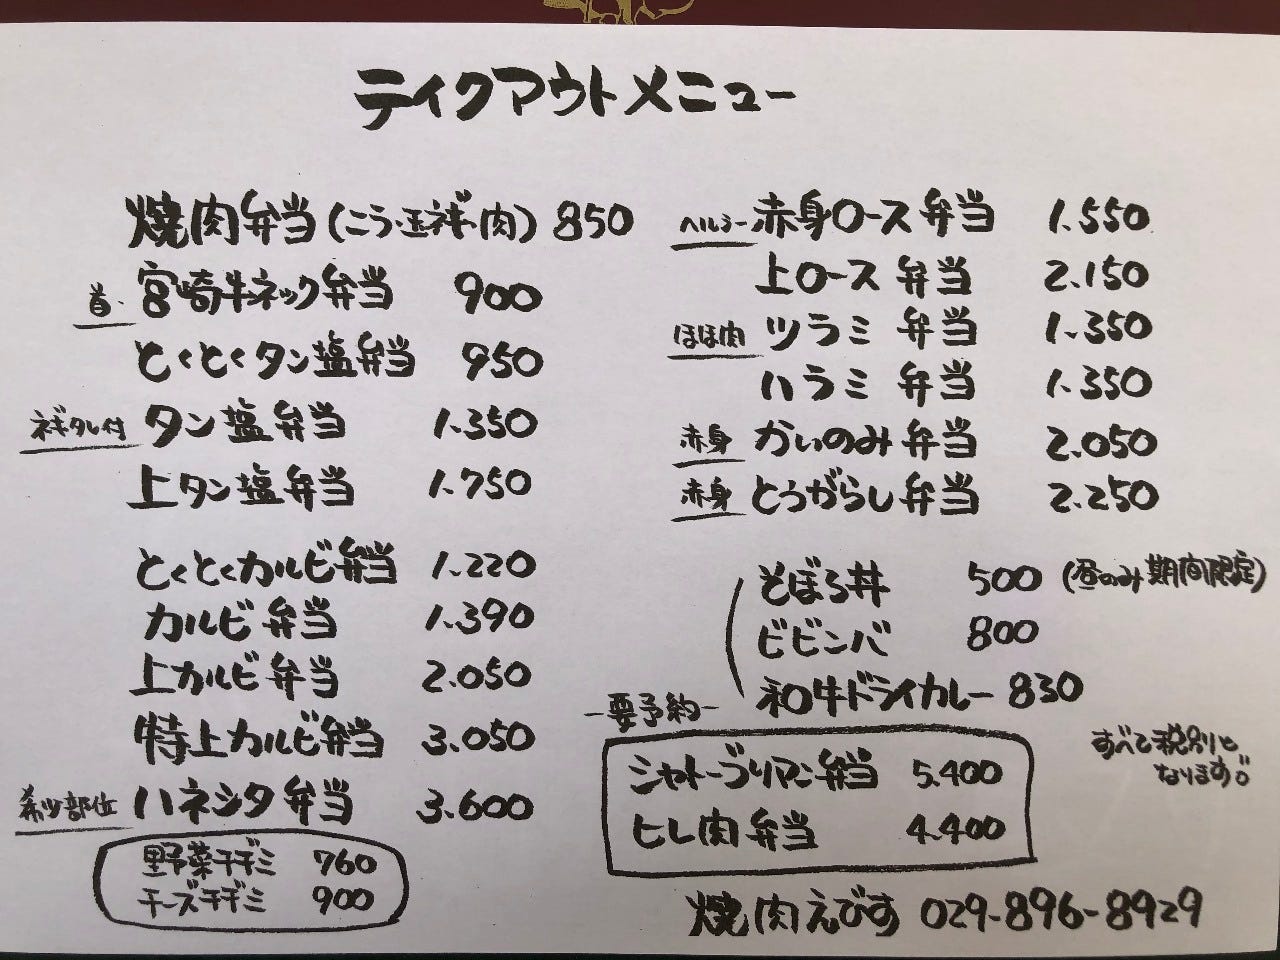 テイクアウトメニュー
焼肉弁当(こう・玉ネギ・肉) 850
首 宮崎牛ネック弁当 900
とくとくタン塩弁当 950
ネギタレ付 タン塩弁当 1.350
上タン塩弁当 1.750
とくとくカルビ弁当 1.220
カルビ弁当 1.390
上カルビ弁当 2.050
特上カルビ弁当 3.050
希少部位 ハネシタ弁当 3.600
野菜チヂミ 760
チーズチヂミ 900
ヘルシー 赤身ロース弁当 1.550
上ロース弁当 2.150
ほほ肉 ツラミ弁当 1.350
ハラミ弁当 1.350
赤身 かいのみ弁当 2.050
赤身 とうがらし弁当 2.250
そぼろ丼 500 (昼のみ期間限定)
ビビンバ 800
和牛ドライカレー 830
-要予約-
シャトーブリアン弁当 5.400
ヒレ肉弁当 4.400
すべて税別と
なります。
焼肉えびす 029-896-8929